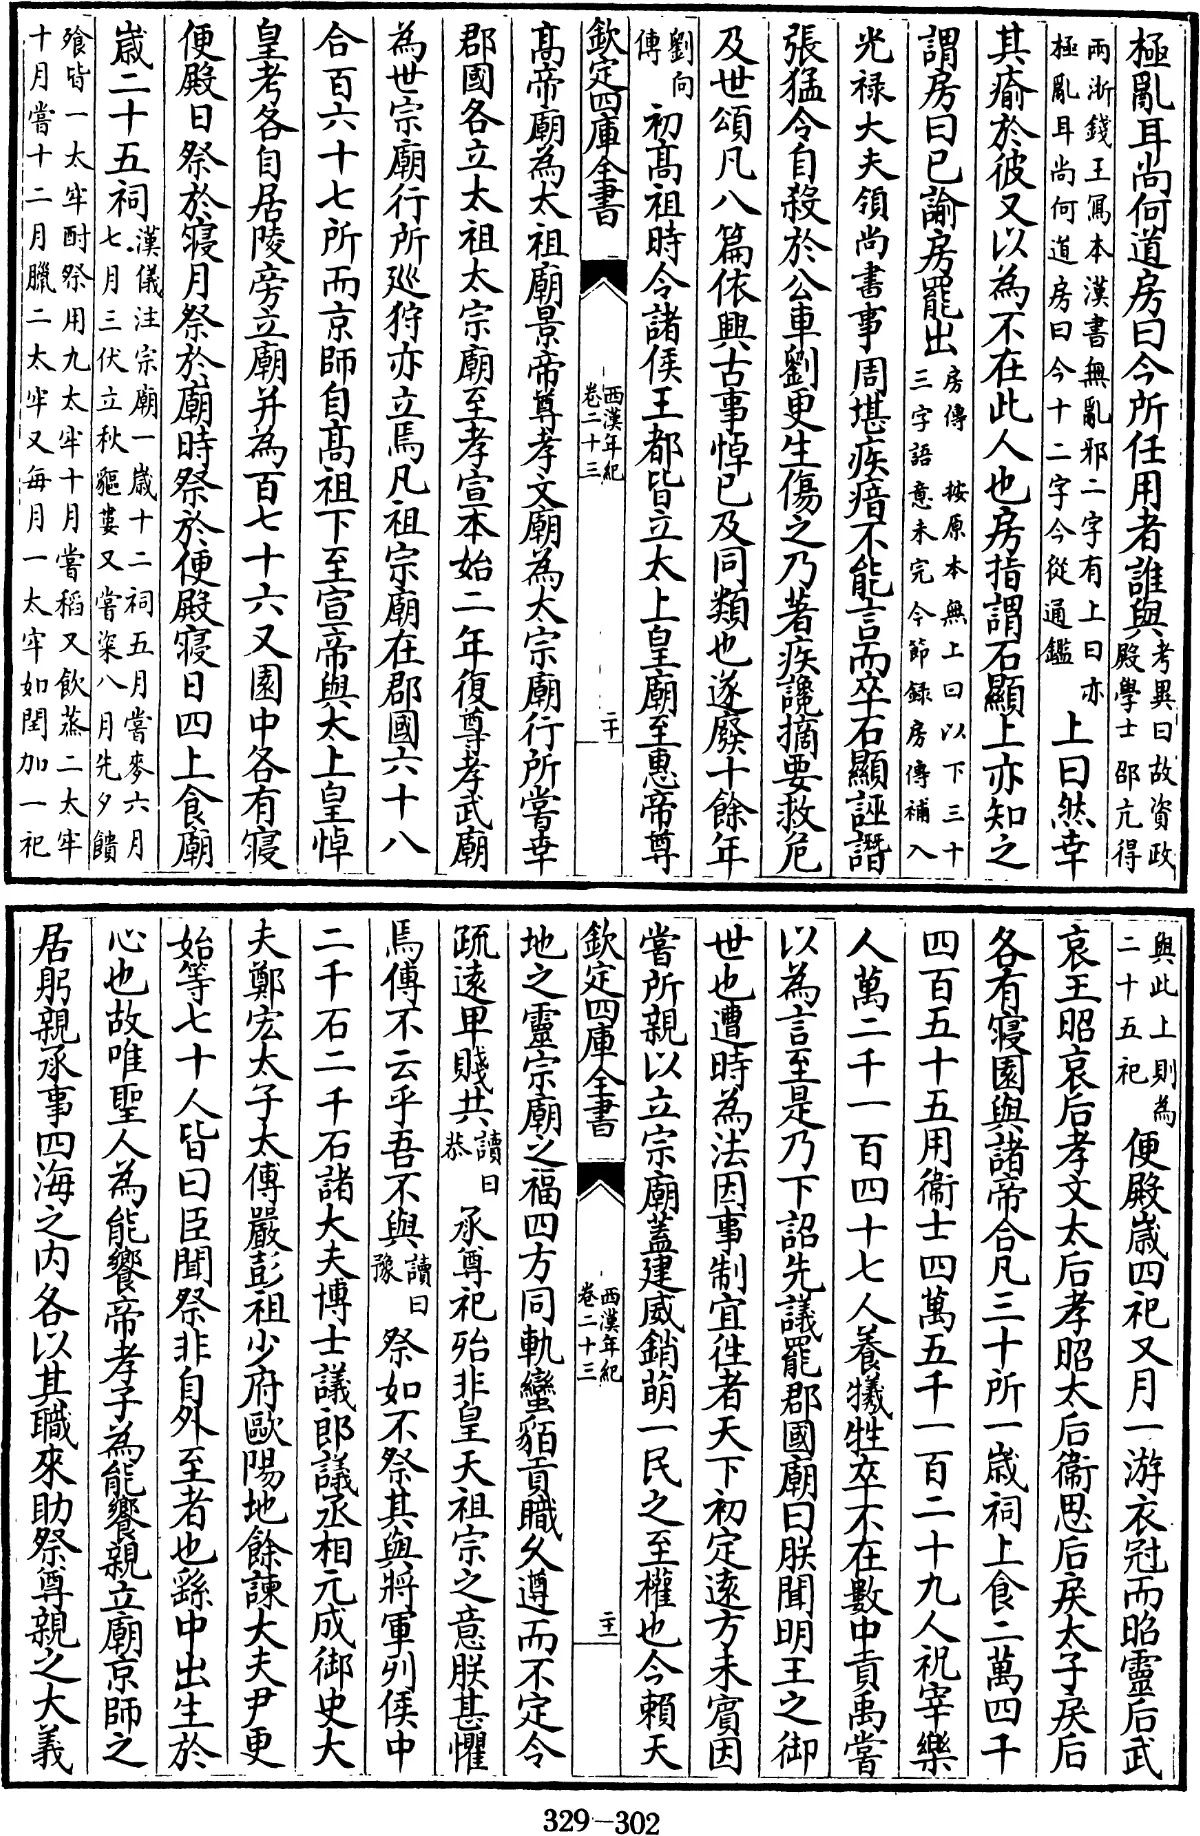 極亂耳尚何道房曰今所任用者誰與考異曰故資政殿學士邵亢得
兩浙錢王寫本漢書無亂邪二字有上曰亦極亂耳尚何道房曰今十二字今從通鑑上曰然幸
其瘉於彼又以為不在此人也房指謂石顯上亦知之
謂房曰已諭房罷出房傳 按原本無上曰以下三十三字語意未完今節録房傳補入
光禄大夫領尚書事周堪疾瘖不能言而卒石顯誣譖
張猛令自殺於公車劉更生傷之乃著疾讒摘要救危
及世頌凡八篇依興古事悼已及同類也遂廢十餘年
劉向傳初髙祖時令諸侯王都皆立太上皇廟至惠帝尊
欽定四庫全書
西漢年紀
卷二十三
二十
髙帝廟為太祖廟景帝尊孝文廟為太宗廟行所嘗幸
郡國各立太祖太宗廟至孝宣本始二年復尊孝武廟
為世宗廟行所廵狩亦立焉凡祖宗廟在郡國六十八
合百六十七所而京師自髙祖下至宣帝與太上皇悼
皇考各自居陵旁立廟并為百七十六又園中各有寢
便殿日祭於寢月祭於廟時祭於便殿寢日四上食廟
嵗二十五祠漢儀注宗廟一嵗十二祠五月嘗麥六月七月三伏立秋貙婁又嘗粢八月先夕饋
飱皆一太牢酎祭用九太牢十月嘗稻又飲蒸二太牢十月嘗十二月臘二太牢又每月一太牢如閏加一祀
與此上則為二十五祀便殿嵗四祀又月一游衣冠而昭靈后武
哀王昭哀后孝文太后孝昭太后衞思后戾太子戾后
各有寢園與諸帝合凡三十所一嵗祠上食二萬四千
四百五十五用衞士四萬五千一百二十九人祝宰樂
人萬二千一百四十七人養犧牲卒不在數中貢禹嘗
以為言至是乃下詔先議罷郡國廟曰朕聞明王之御
世也遭時為法因事制宜徃者天下初定逺方未賔因
嘗所親以立宗廟蓋建威銷萌一民之至權也今賴天
欽定四庫全書
西漢年紀
卷二十三
二十一
地之靈宗廟之福四方同軌蠻貊貢職久遵而不定令
疏逺卑賤共讀曰恭承尊祀殆非皇天祖宗之意朕甚懼
焉傳不云乎吾不與讀曰豫祭如不祭其與將軍列侯中
二千石二千石諸大夫博士議郎議丞相元成御史大
夫鄭宏太子太傅嚴彭祖少府歐陽地餘諫大夫尹更
始等七十人皆曰臣聞祭非自外至者也繇中出生於
心也故唯聖人為能饗帝孝子為能饗親立廟京師之
居躬親承事四海之内各以其職來助祭尊親之大義
329－302